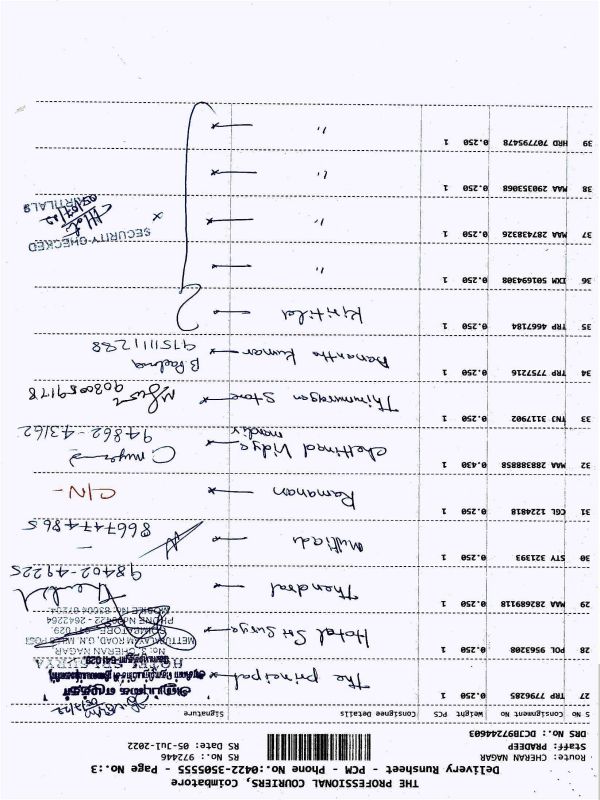 THE PROFESSIONAL COURIERS, Coimbatore
Delivery Runsheet - PCM - Phone No.:0422-3505555 - Page No.:3
Route: CHERAN NAGAR
Staff: PRADEEP RS No.: 972446
DRS No.: DCJ897244603 RS Date: 05-Jul-2022
S No Consignment No Weight PCS Consignee Details Signature
27 TRP 7796285 0.250 1 The principal
28 POL 9563208 0.250 1 Hotel Sri Surya
HOTEL SRI SURYA
No: 3, CHERAN NAGAR
METTUPALAYAM ROAD, G.N. MILLS POST
COIMBATORE - 641 029.
PHONE No: 0422 - 2642264
29 MAA 282689118 0.250 1 Thendral 98402-49225
30 STY 321393 0.250 1 Multiadi 8667474865
31 CGL 1224818 0.250 1 Ramanan C/N-
32 MAA 288388858 0.430 1 Chettinad Vidya mandir 94862-43162
33 TNJ 3117902 0.250 1 Thirumurugan Store 9080059178
34 TRP 7757216 0.250 1 Ananntha Kumar B. Padma 9751111288
35 TRP 4667184 0.250 1 Kirtilal
36 IXM 501694308 0.250 1 "
37 MAA 287438326 0.250 1 "
SECURITY CHECKED
38 MAA 290353068 0.250 1 "
KIRTILALS
39 HRD 707795478 0.250 1 "